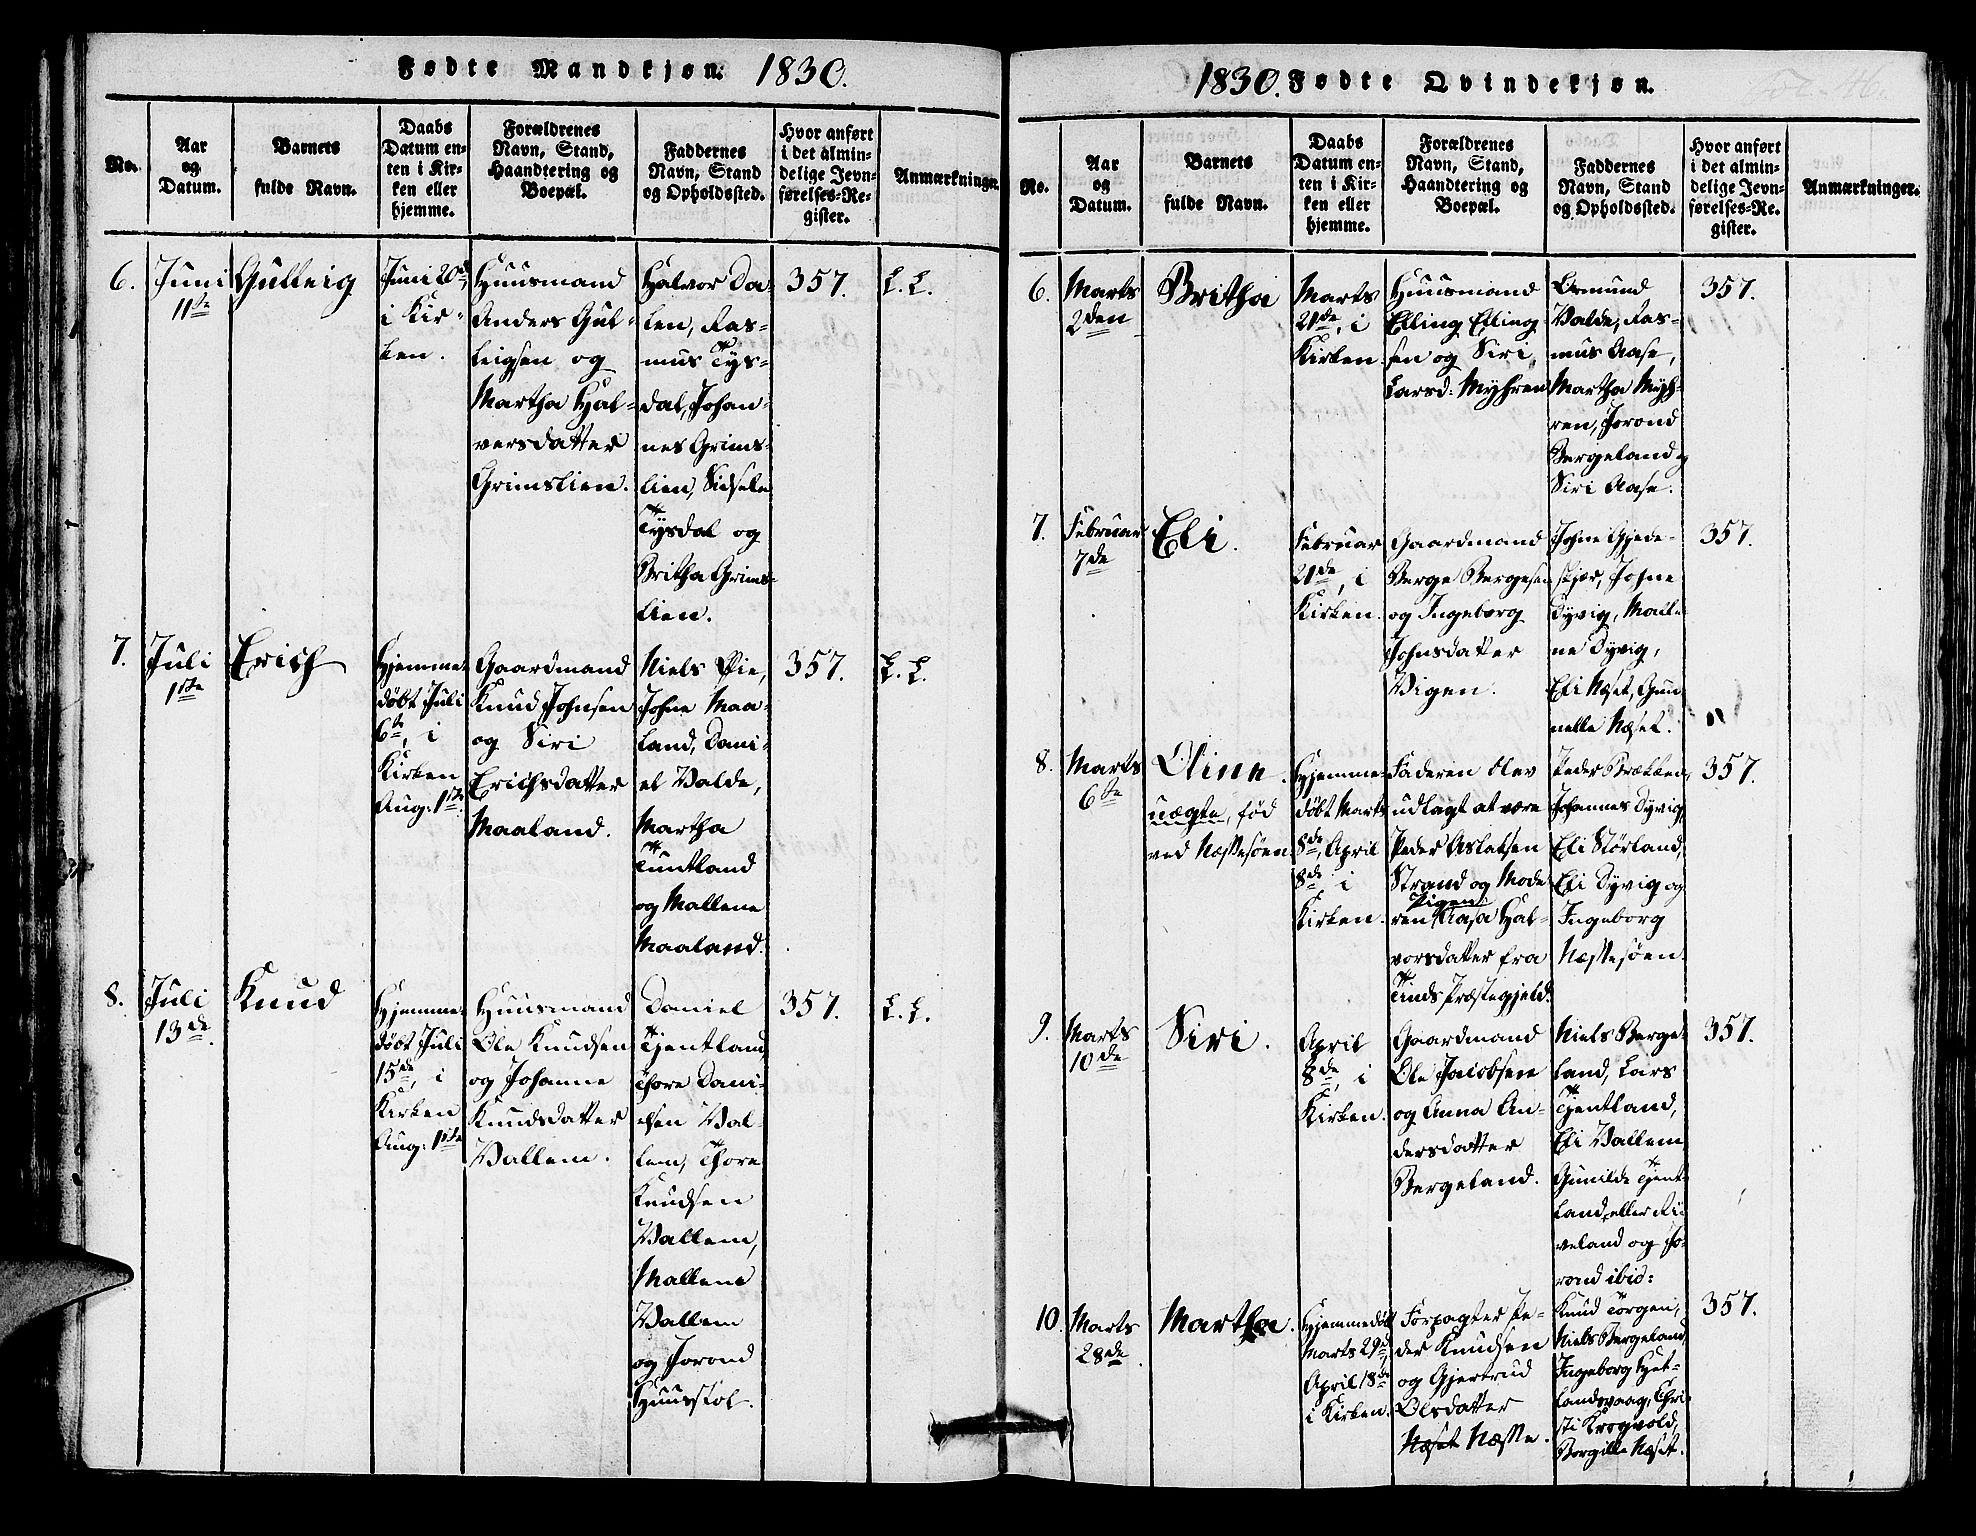 Fødte Mandkjøn: 1830.
No.
Aar
og
Datum.
Barnets
fulde Navn.
Daabs
Datum en-
ten i Kir-
ken eller
hjemme.
Forældrenes
Navn, Stand,
Haandtering og
Boepæl.
Faddernes
Navn, Stand
og Opholdssted.
Hvor anført
i det almin-
delige Jevn-
førelses-Re-
gister.
Anmærkninger.
6.
Juni
11te
Gulleig
Juni 20de
i Kir-
ken.
Huusmand
Anders Gul-
leigsen og
Martha Hal-
versdatter
Grimslien.
Halvor Da-
len, Ras-
mus Tys-
dal, Johan-
nes Grims-
lien, Sidsele
Tysdal og
Britha Grims-
lien.
357.
L. L.
7.
Juli
1ste
Erich
Hjemme-
døbt Juli
6te, i
Kirken
Aug: 1ste
Gaardmand
Knud Johnsen
og Siri
Erichsdatter
Maaland.
Niels Øie,
Johne Maa-
land, Dani-
el Valde,
Martha
Tuntland
og Mallene
Maaland.
357.
L. L.
8.
Juli
13de
Knud
Hjemme-
døbt Juli
15de, i
Kirken
Aug: 1ste
Huusmand
Ole Knudsen
og Johanne
Knudsdatter
Vallem.
Daniel
Tjentland
Thore Dani-
elsen Val-
lem, Thore
Knudsen
Vallem,
Mallene
Vallem
og Jorond
Huusstøl.
357.
L. L.
1830. Fødte Qvindekjøn.
Fol. 46.
No.
Aar
og
Datum.
Barnets
fulde Navn.
Daabs
Datum en-
ten i Kir-
ken eller
hjemme.
Forældrenes
Navn, Stand,
Haandtering og
Boepæl.
Faddernes
Navn, Stand
og Opholdssted.
Hvor anført
i det almin-
delige Jevn-
førelses-Re-
gister.
Anmærkninger.
6.
Marts
2den
Britha
Marts
21de, i
Kirken.
Huusmand
Elling Elling-
sen og Siri
Larsd: Myhren
Ormund
Valde, Ras-
mus Aase,
Martha Myh-
ren, Jorond
Bergeland og
Siri Aase.
357.
7.
Februar
7de
Eli.
Februar
21de, i
Kirken.
Gaardmand
Berge Bergesen
og Ingeborg
Johnsdatter
Vigen.
Johne Gjede-
skjær, Johne
Dyvig, Male-
ne Dyvig,
Eli Næset, Gun-
nelle Næset.
357.
8.
Marts
6te
Olina.
uægte, fød
ved Næssesøen.
Hjemme-
døbt Marts
8de, April
8de i
Kirken.
Faderen blev
udlagt at være
Peder Aslaksen
Strand og Mode-
ren Pigen Aasa Hal-
vorsdatter fra
Tinds Præstegjeld.
Peder Brækken,
Johannes Dyvig,
Eli Størland,
Eli Dyvig og
Ingeborg
Næssesøen.
357.
9.
Marts
10de
Siri.
April
8de, i
Kirken.
Gaardmand
Ole Jacobsen
og Anna An-
dersdatter
Bergeland.
Niels Berge-
land, Lars
Tjentland,
Eli Vallem
Gunilde Tjent-
land eller Ri-
veland og Jo-
rond ibid:
357.
10.
Marts
28de
Martha.
Hjemmedøbt
Marts 29de,
April 18de
i Kirken.
Forpagter Pe-
der Knudsen
og Gjertrud
Olsdatter
Næset Næsse.
Knud Tørgeni,
Niels Bergeland,
Ingeborg Hjet-
landsvaag, Chri-
sti Krogvold,
Borgille Næset.
357.